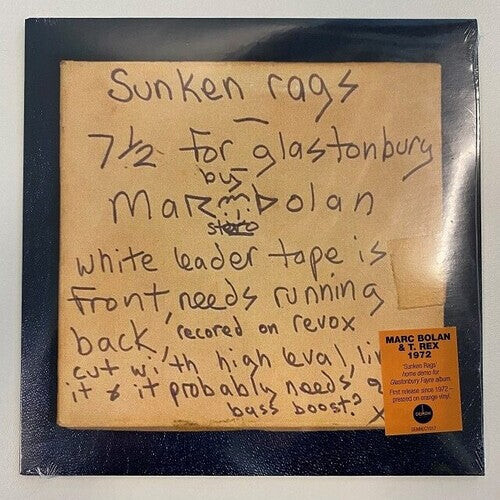 Sunken rags
7½ for glastonbury
by
Marc Bolan
stereo
white leader tape is
front, needs running
back, recored on revox
cut with high leval, lim
it & it probably needs a
bass boost? x
MARC BOLAN
& T. REX
1972
'Sunken Rags'
home demo for
Glastonbury Fayre album.
First release since 1972 –
pressed on orange vinyl.
DEMON